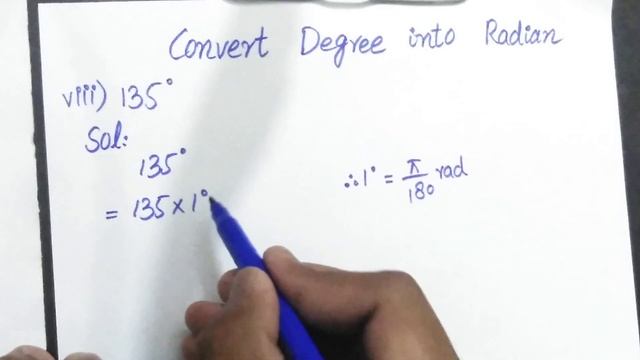 Convert Degree into Radian
viii) 135°
Sol:
135°
= 135 × 1°
∴ 1° = π/180 rad